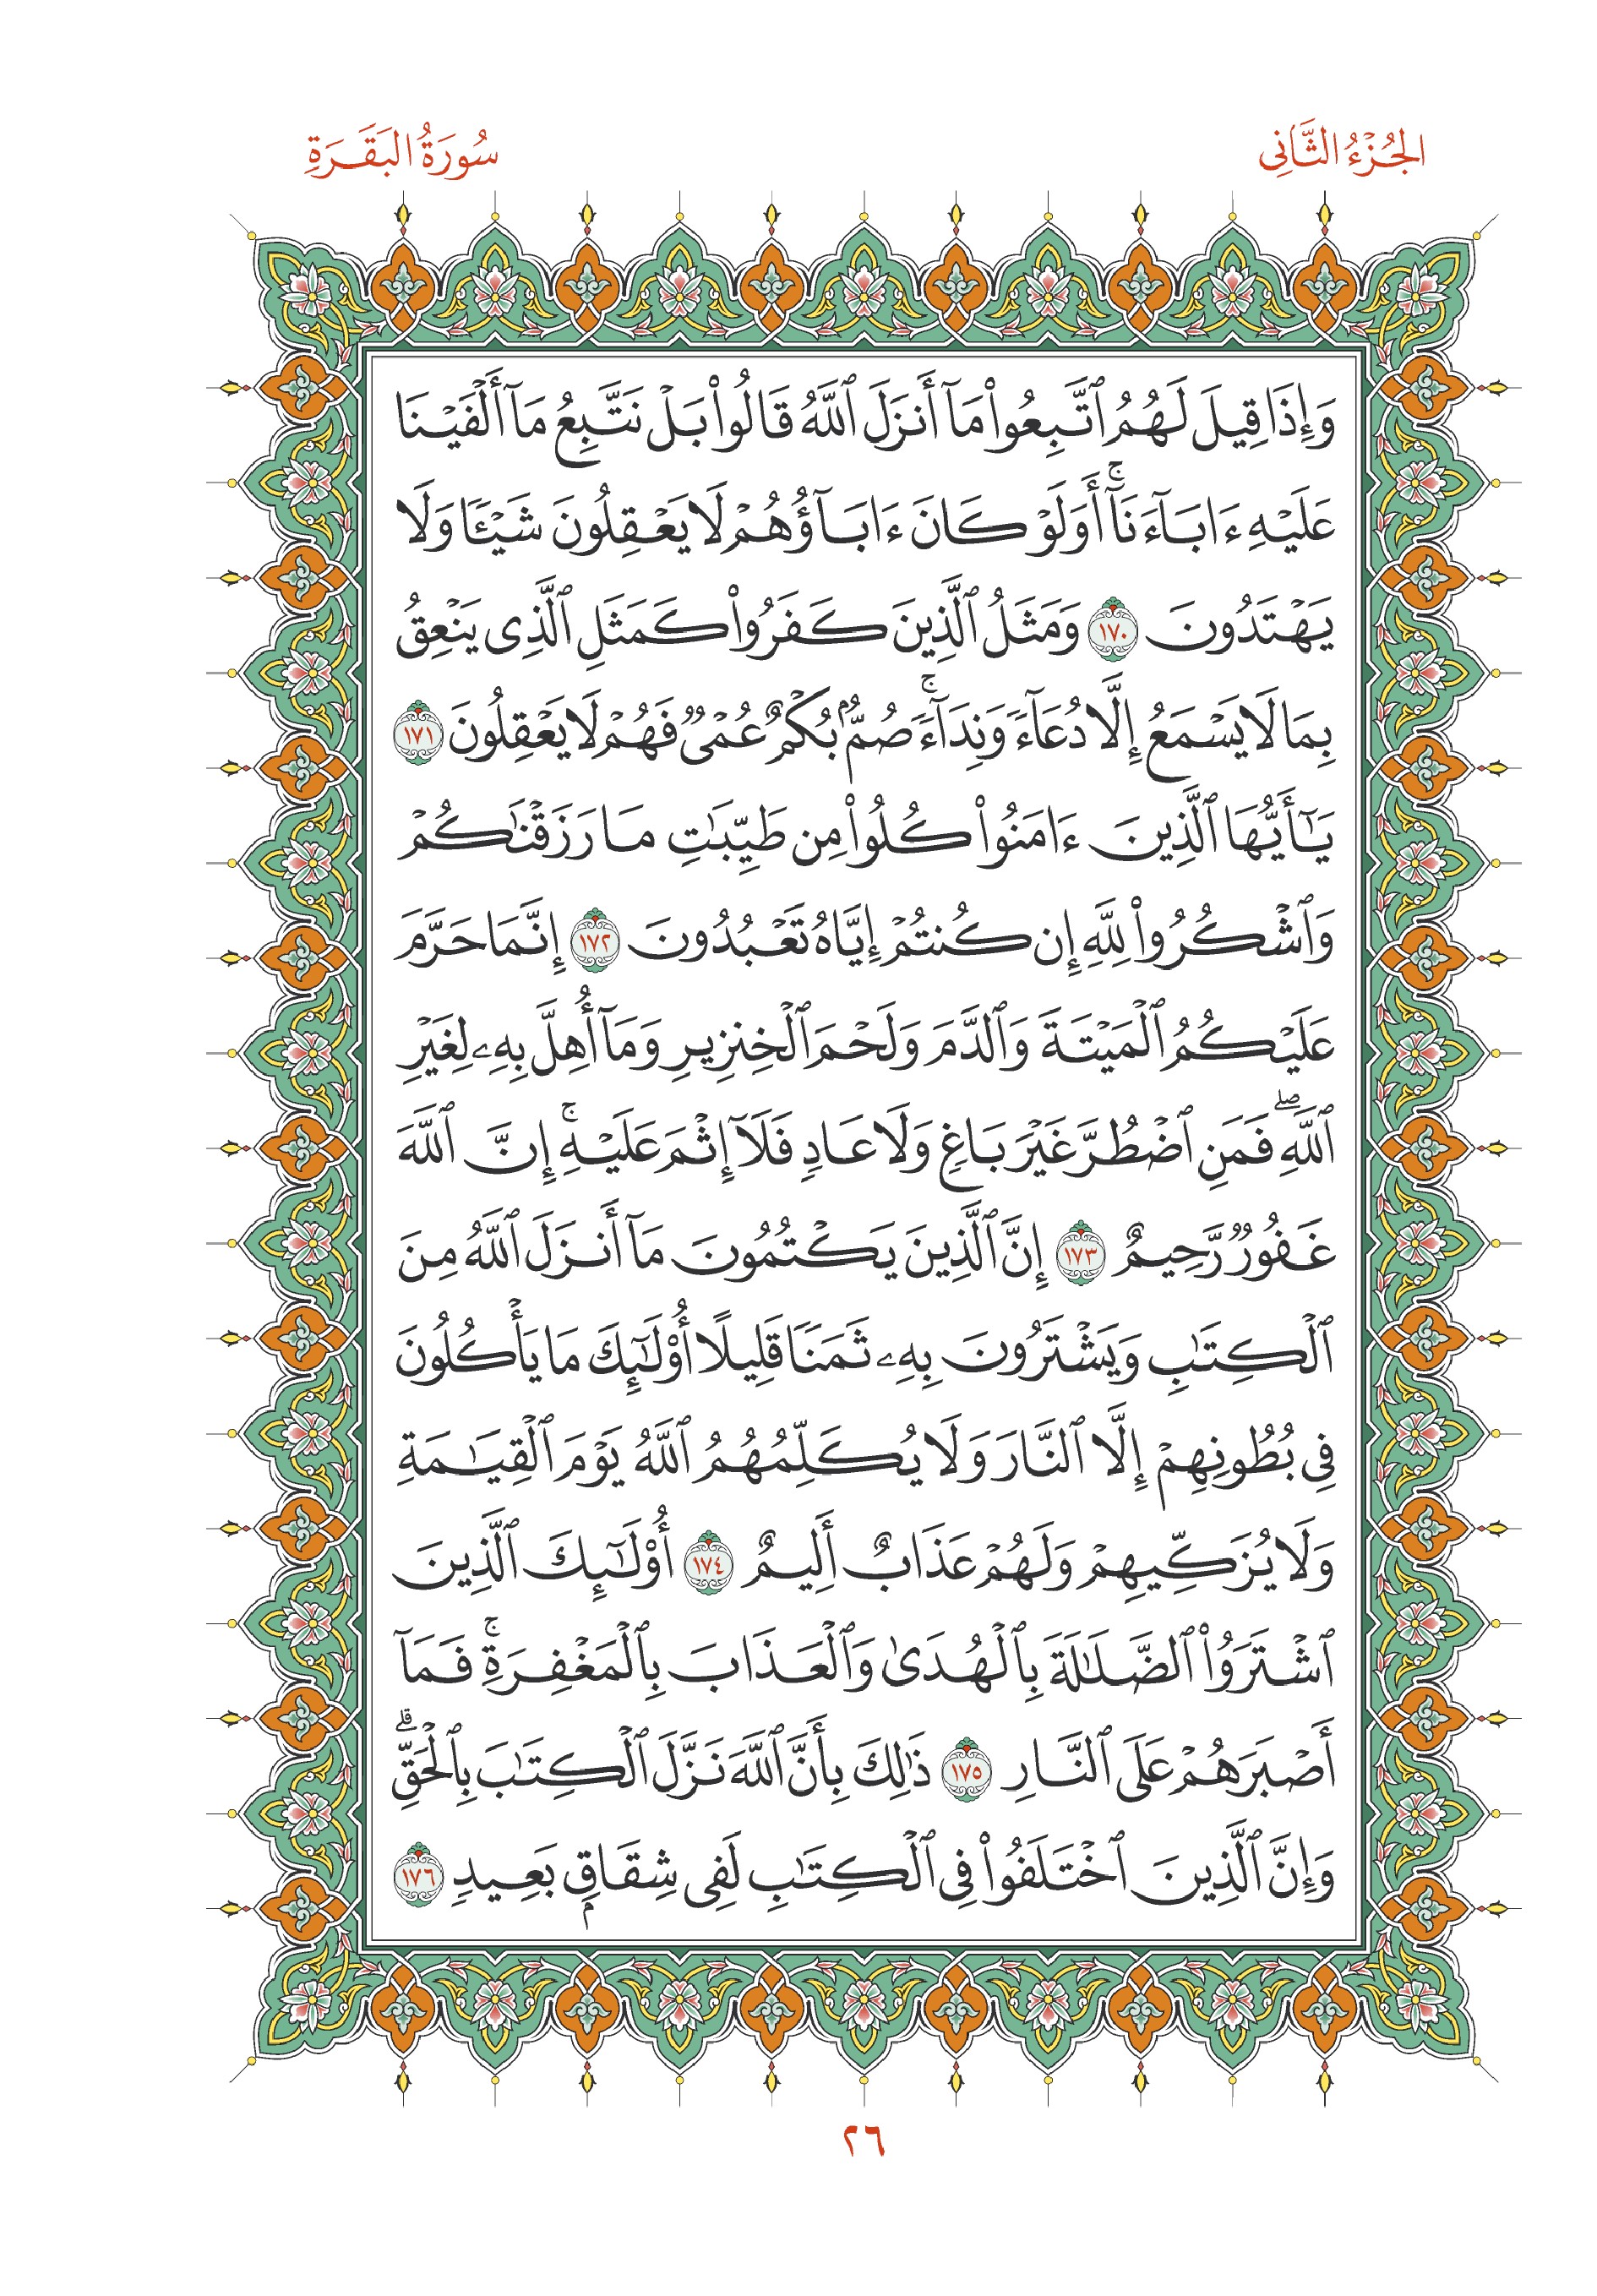 الجُزْءُ الثَّانِي
سُورَةُ البَقَرَةِ
وَإِذَا قِيلَ لَهُمُ ٱتَّبِعُوا۟ مَآ أَنزَلَ ٱللَّهُ قَالُوا۟ بَلْ نَتَّبِعُ مَآ أَلْفَيْنَا
عَلَيْهِ ءَابَآءَنَآ ۚ أَوَلَوْ كَانَ ءَابَآؤُهُمْ لَا يَعْقِلُونَ شَيْـًٔا وَلَا
يَهْتَدُونَ ١٧٠ وَمَثَلُ ٱلَّذِينَ كَفَرُوا۟ كَمَثَلِ ٱلَّذِى يَنْعِقُ
بِمَا لَا يَسْمَعُ إِلَّا دُعَآءً وَنِدَآءً ۚ صُمٌّۢ بُكْمٌ عُمْىٌ فَهُمْ لَا يَعْقِلُونَ ١٧١
يَـٰٓأَيُّهَا ٱلَّذِينَ ءَامَنُوا۟ كُلُوا۟ مِن طَيِّبَـٰتِ مَا رَزَقْنَـٰكُمْ
وَٱشْكُرُوا۟ لِلَّهِ إِن كُنتُمْ إِيَّاهُ تَعْبُدُونَ ١٧٢ إِنَّمَا حَرَّمَ
عَلَيْكُمُ ٱلْمَيْتَةَ وَٱلدَّمَ وَلَحْمَ ٱلْخِنزِيرِ وَمَآ أُهِلَّ بِهِۦ لِغَيْرِ
ٱللَّهِ ۖ فَمَنِ ٱضْطُرَّ غَيْرَ بَاغٍ وَلَا عَادٍ فَلَآ إِثْمَ عَلَيْهِ ۚ إِنَّ ٱللَّهَ
غَفُورٌ رَّحِيمٌ ١٧٣ إِنَّ ٱلَّذِينَ يَكْتُمُونَ مَآ أَنزَلَ ٱللَّهُ مِنَ
ٱلْكِتَـٰبِ وَيَشْتَرُونَ بِهِۦ ثَمَنًا قَلِيلًا أُو۟لَـٰٓئِكَ مَا يَأْكُلُونَ
فِى بُطُونِهِمْ إِلَّا ٱلنَّارَ وَلَا يُكَلِّمُهُمُ ٱللَّهُ يَوْمَ ٱلْقِيَـٰمَةِ
وَلَا يُزَكِّيهِمْ وَلَهُمْ عَذَابٌ أَلِيمٌ ١٧٤ أُو۟لَـٰٓئِكَ ٱلَّذِينَ
ٱشْتَرَوُا۟ ٱلضَّلَـٰلَةَ بِٱلْهُدَىٰ وَٱلْعَذَابَ بِٱلْمَغْفِرَةِ ۚ فَمَآ
أَصْبَرَهُمْ عَلَى ٱلنَّارِ ١٧٥ ذَٰلِكَ بِأَنَّ ٱللَّهَ نَزَّلَ ٱلْكِتَـٰبَ بِٱلْحَقِّ ۗ
وَإِنَّ ٱلَّذِينَ ٱخْتَلَفُوا۟ فِى ٱلْكِتَـٰبِ لَفِى شِقَاقٍۭ بَعِيدٍ ١٧٦
٢٦